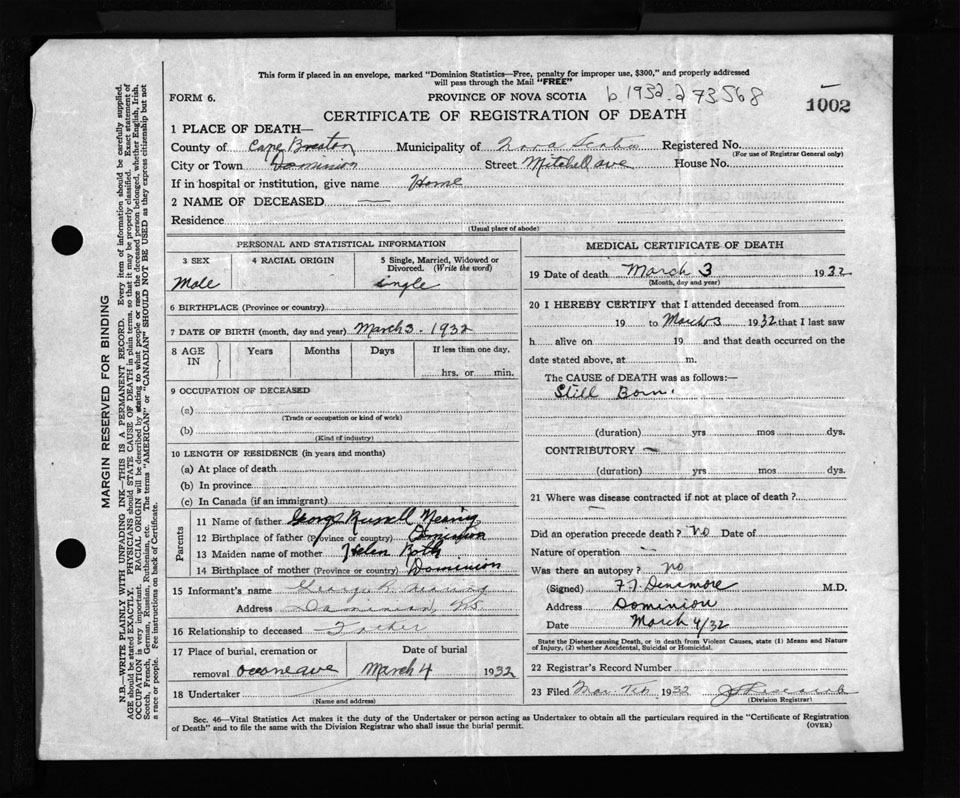 This form if placed in an envelope, marked "Dominion Statistics—Free, penalty for improper use, $300," and properly addressed
will pass through the Mail "FREE"
FORM 6. PROVINCE OF NOVA SCOTIA b 1932. 273568 1002
CERTIFICATE OF REGISTRATION OF DEATH
1 PLACE OF DEATH—
County of Cape Breton Municipality of Nova Scotia Registered No.
(For use of Registrar General only)
City or Town Dominion Street Mitchell ave House No.
If in hospital or institution, give name Home
2 NAME OF DECEASED —
Residence
(Usual place of abode)
PERSONAL AND STATISTICAL INFORMATION
3 SEX 4 RACIAL ORIGIN 5 Single, Married, Widowed or
Divorced. (Write the word)
Male Single
6 BIRTHPLACE (Province or country)
7 DATE OF BIRTH (month, day and year) March 3. 1932
8 AGE IN Years Months Days If less than one day,
hrs. or min.
9 OCCUPATION OF DECEASED
(a)
(Trade or occupation or kind of work)
(b)
(Kind of industry)
10 LENGTH OF RESIDENCE (in years and months)
(a) At place of death
(b) In province
(c) In Canada (if an immigrant)
Parents
11 Name of father George Russell Nearing
12 Birthplace of father (Province or country) Dominion
13 Maiden name of mother Helen Roth
14 Birthplace of mother (Province or country) Dominion
15 Informant's name George R. Nearing
Address Dominion, NS
16 Relationship to deceased Father
17 Place of burial, cremation or Date of burial
removal ave March 4 1932
18 Undertaker
(Name and address)
MEDICAL CERTIFICATE OF DEATH
19 Date of death March 3 1932
(Month, day and year)
20 I HEREBY CERTIFY that I attended deceased from
19 to March 3 1932 that I last saw
h alive on 19 and that death occurred on the
date stated above, at m.
The CAUSE of DEATH was as follows:—
Still Born.
(duration) yrs mos dys.
CONTRIBUTORY —
(duration) yrs mos dys.
21 Where was disease contracted if not at place of death?
—
Did an operation precede death? no Date of
Nature of operation —
Was there an autopsy? no
(Signed) F. J. Densmore M.D.
Address Dominion
Date March 4/32
State the Disease causing Death, or in death from Violent Causes, state (1) Means and Nature
of Injury, (2) whether Accidental, Suicidal or Homicidal.
22 Registrar's Record Number
23 Filed 1932
(Division Registrar)
Sec. 46—Vital Statistics Act makes it the duty of the Undertaker or person acting as Undertaker to obtain all the particulars required in the "Certificate of Registration
of Death" and to file the same with the Division Registrar who shall issue the burial permit. (OVER)
MARGIN RESERVED FOR BINDING
N.B.—WRITE PLAINLY WITH UNFADING INK—THIS IS A PERMANENT RECORD. Every item of information should be carefully supplied.
AGE should be stated EXACTLY. PHYSICIANS should STATE CAUSE OF DEATH in plain terms, so that it may be properly classified. Exact statement of
OCCUPATION is very important. RACIAL ORIGIN will be described by stating to what people or race the deceased person belonged, whether English, Irish,
Scotch, French, German, Russian, Ruthenian, etc. The terms "AMERICAN" or "CANADIAN" SHOULD NOT BE USED as they express citizenship but not
a race or people. See instructions on back of Certificate.